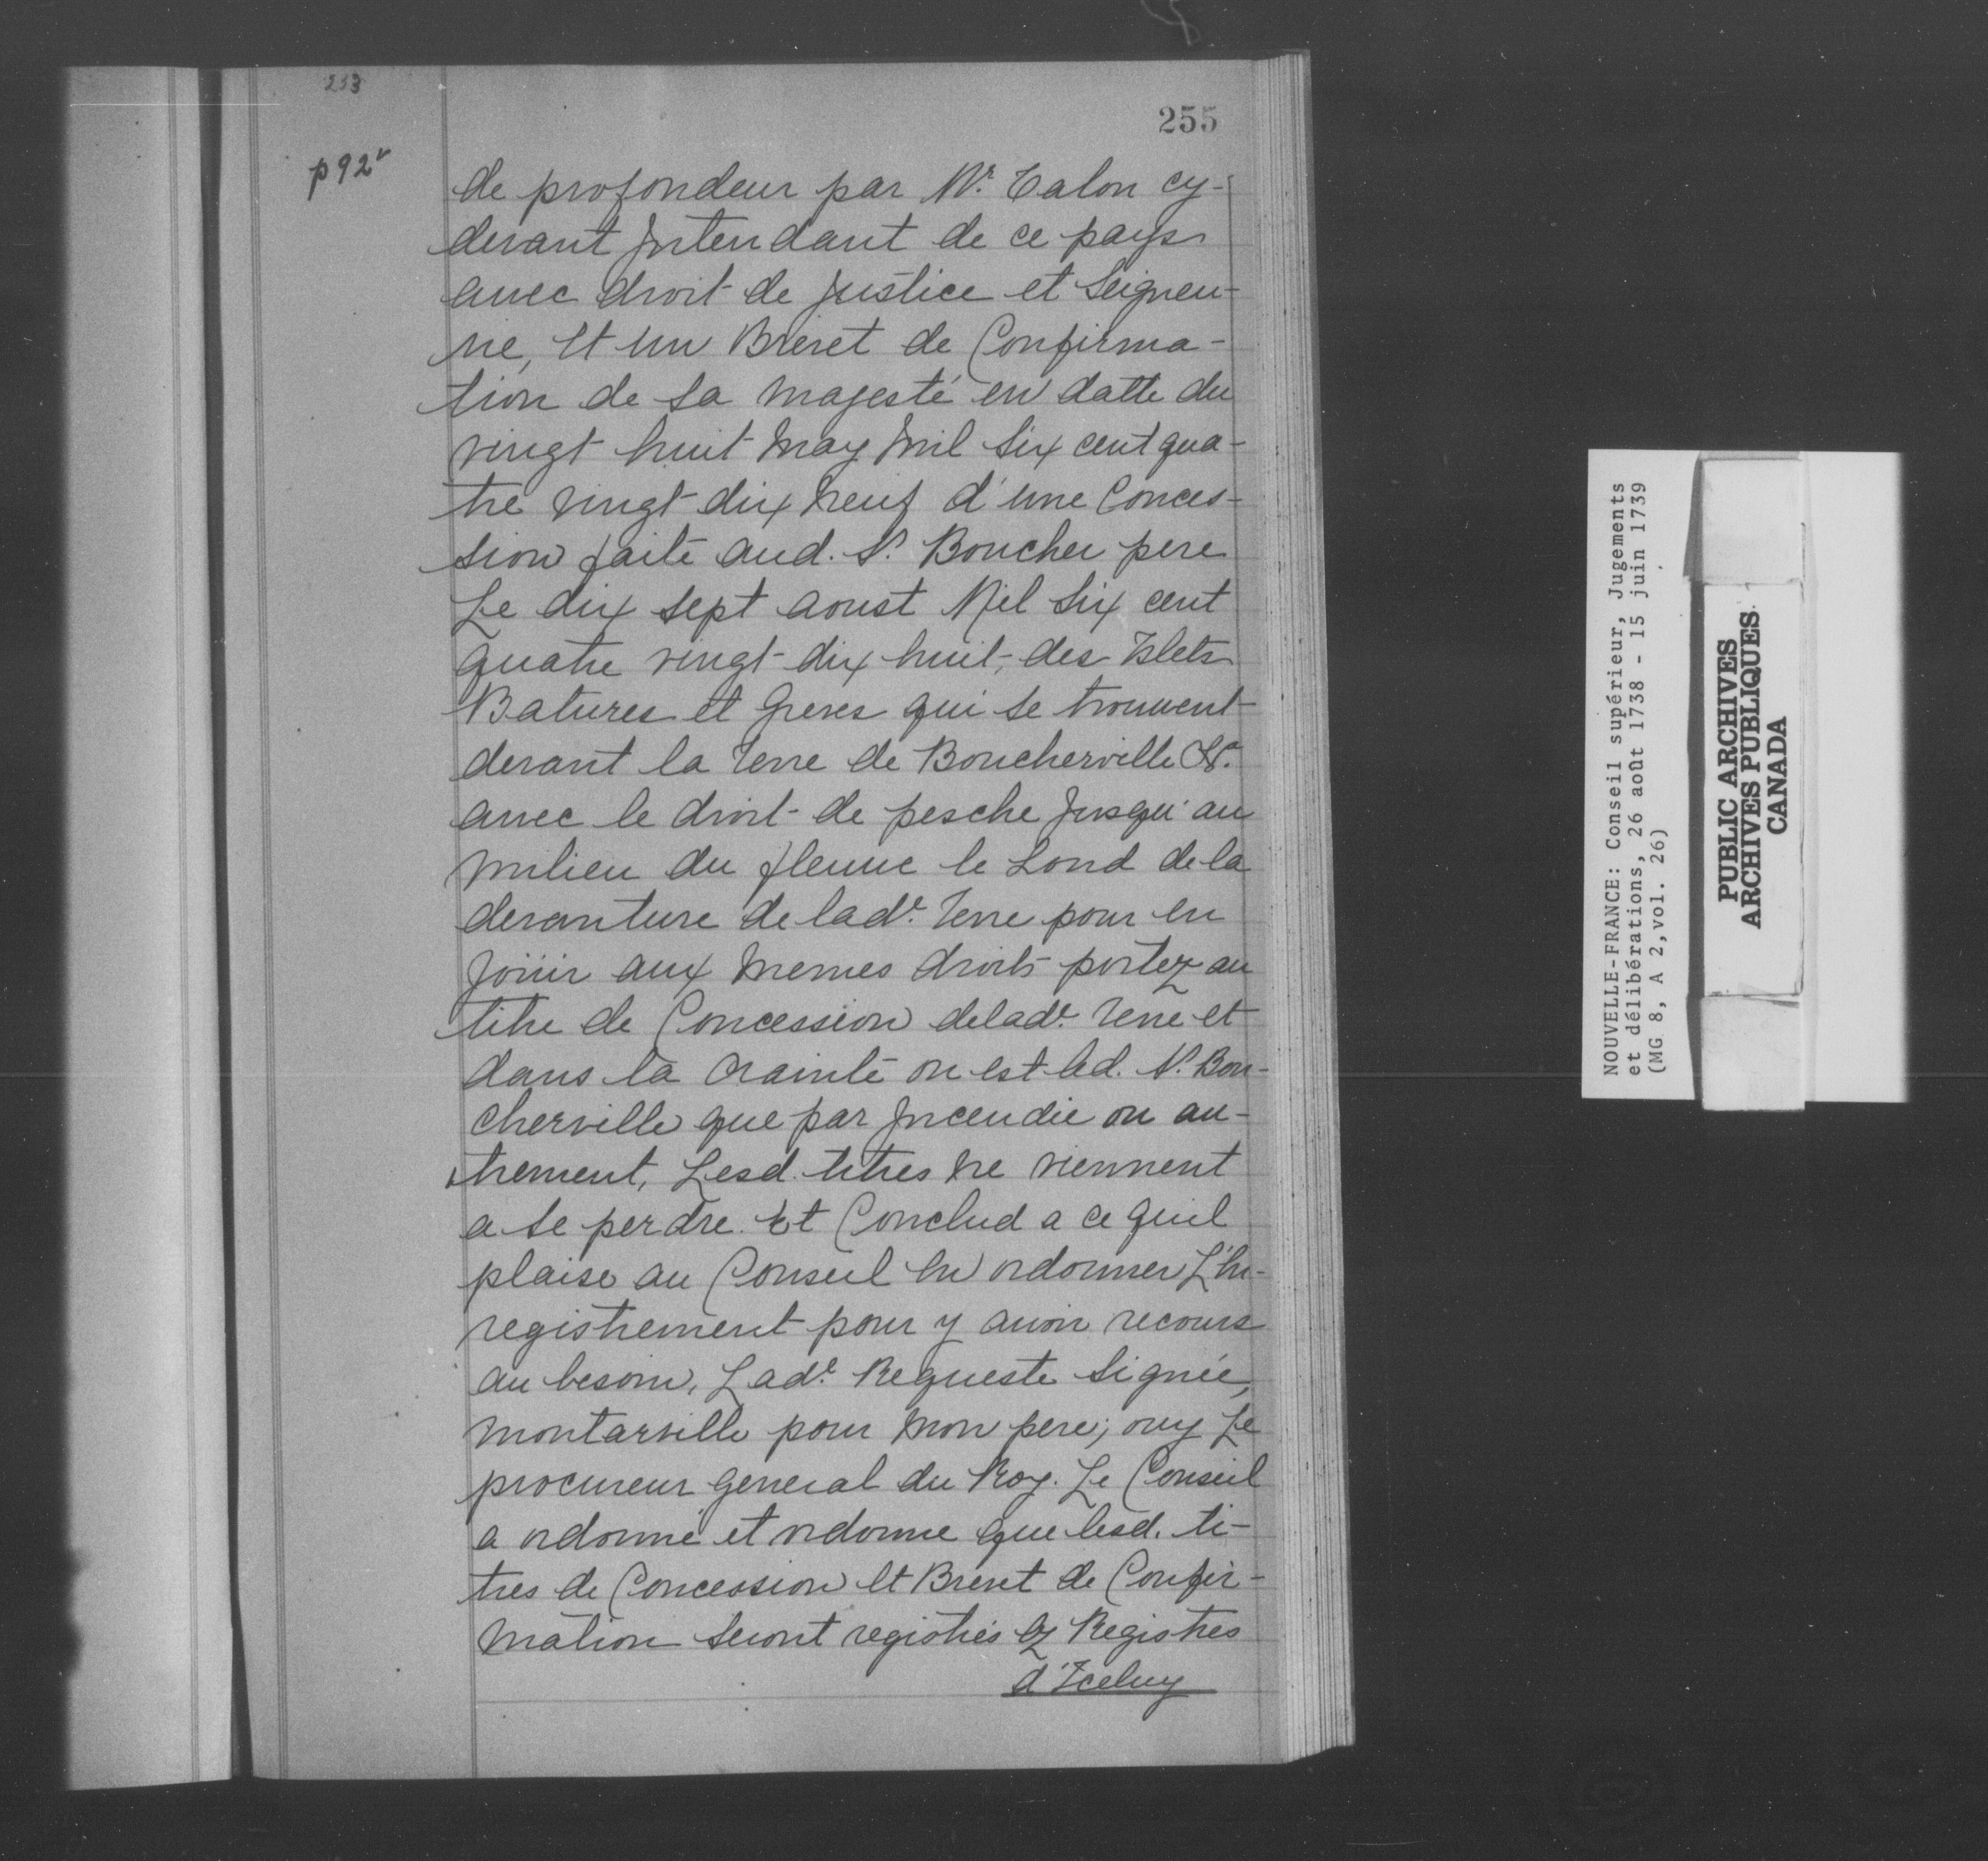 233
255
p 92v
de profondeur par Mr. Talon cy-
devant Intendant de ce pays
avec droit de Justice et Seigneu-
rie, Et un Brevet de Confirma-
tion de Sa Majesté en datte du
vingt huit May Mil Six cent qua-
tre vingt dix neuf d'une Conces-
sion faite aud. Sr. Boucher pere
Le dix Sept aoust Mil Six cent
quatre vingt dix huit, des Islets
Batures et Greves qui se trouvent
devant la terre de Boucherville &c.
avec le droit de pesche Jusqu'au
Milieu du fleuve le Lond de la
devanture de lade. terre pour en
Joüir aux Memes droits portez au
titre de Concession de lade. terre et
dans la crainte ou est led. Sr. Bou-
cherville que par Incendie ou au-
trement, Lesd. titres ne viennent
a se perdre. Et Conclud a ce quil
plaise au Conseil en ordonner L'en-
registrement pour y avoir recours
au besoin, Lade. Requeste Signée,
Montarville pour Mon pere; ouy Le
procureur general du Roy. Le Conseil
a ordonné et ordonne que lesd. ti-
tres de Concession et Brevet de Confir-
mation Seront registrés ez Registres
d'Iceluy
NOUVELLE-FRANCE: Conseil supérieur, Jugements
et délibérations, 26 août 1738 - 15 juin 1739
(MG 8, A 2,vol. 26)
PUBLIC ARCHIVES
ARCHIVES PUBLIQUES
CANADA